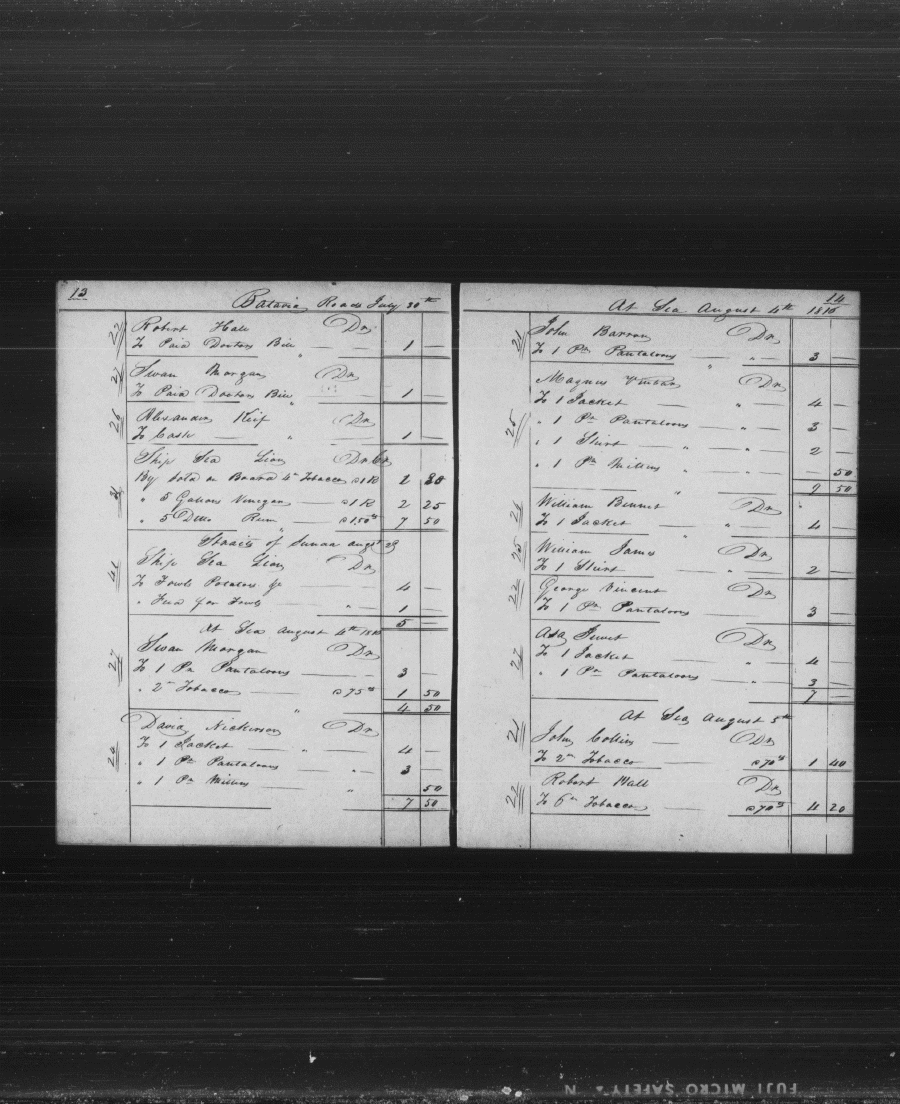 13
Batavia Roads July 30th
22 Robert Hall Dr
To Paid Doctors Bill 1 —
27 Swan Morgan Dr
To Paid Doctors Bill " 1 —
26 Alexander Keif Dr
To Cash " 1 —
Ship Sea Lion Dr Cr
By sold on Board Tobacco
" 5 Gallons Vinegar 2 25
" 5 Ditto Rum $1.50cts 7 50
Straits of Sunda Augst 2d
41 Ship Sea Lion Dr
To Fowls Potatoes &c 4 —
" Feed for Fowls " 1 —
5 —
At Sea August 4th
27 Swan Morgan Dr
To 1 Pr Pantaloons 3 —
" 2lb Tobacco @75cts 1 50
4 50
David Nickerson Dr
To 1 Jacket " 4 —
" 1 Pr Pantaloons " 3 —
" 1 Pr Mittens " 50
7 50
14
At Sea August 4th
21 John Barron Dr
To 1 Pr Pantaloons " 3 —
25 Magnus Dr
To 1 Jacket " 4 —
" 1 Pr Pantaloons " 3 —
" 1 Shirt " 2 —
" 1 Pr Mittens " 50
9 50
William Bennet Dr
To 1 Jacket " 4 —
25 William James Dr
To 1 Shirt " 2 —
22 George Vincent Dr
To 1 Pr Pantaloons 3 —
Asa Jewet Dr
To 1 Jacket " 4
" 1 Pr Pantaloons " 3 —
7 —
At Sea August 5th
21 John Collins Dr
To 2lb Tobacco @70cts 1 40
22 Robert Hall Dr
To 6lb Tobacco @70cts 4 20
FUJI MICRO SAFETY • N